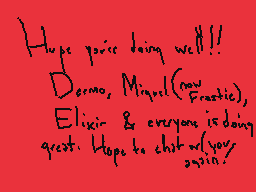 Hope you're doing well!!!
Dermo, Miguel (now Frostie),
Elixir & everyone is doing
great. Hope to chat w/ you
again!